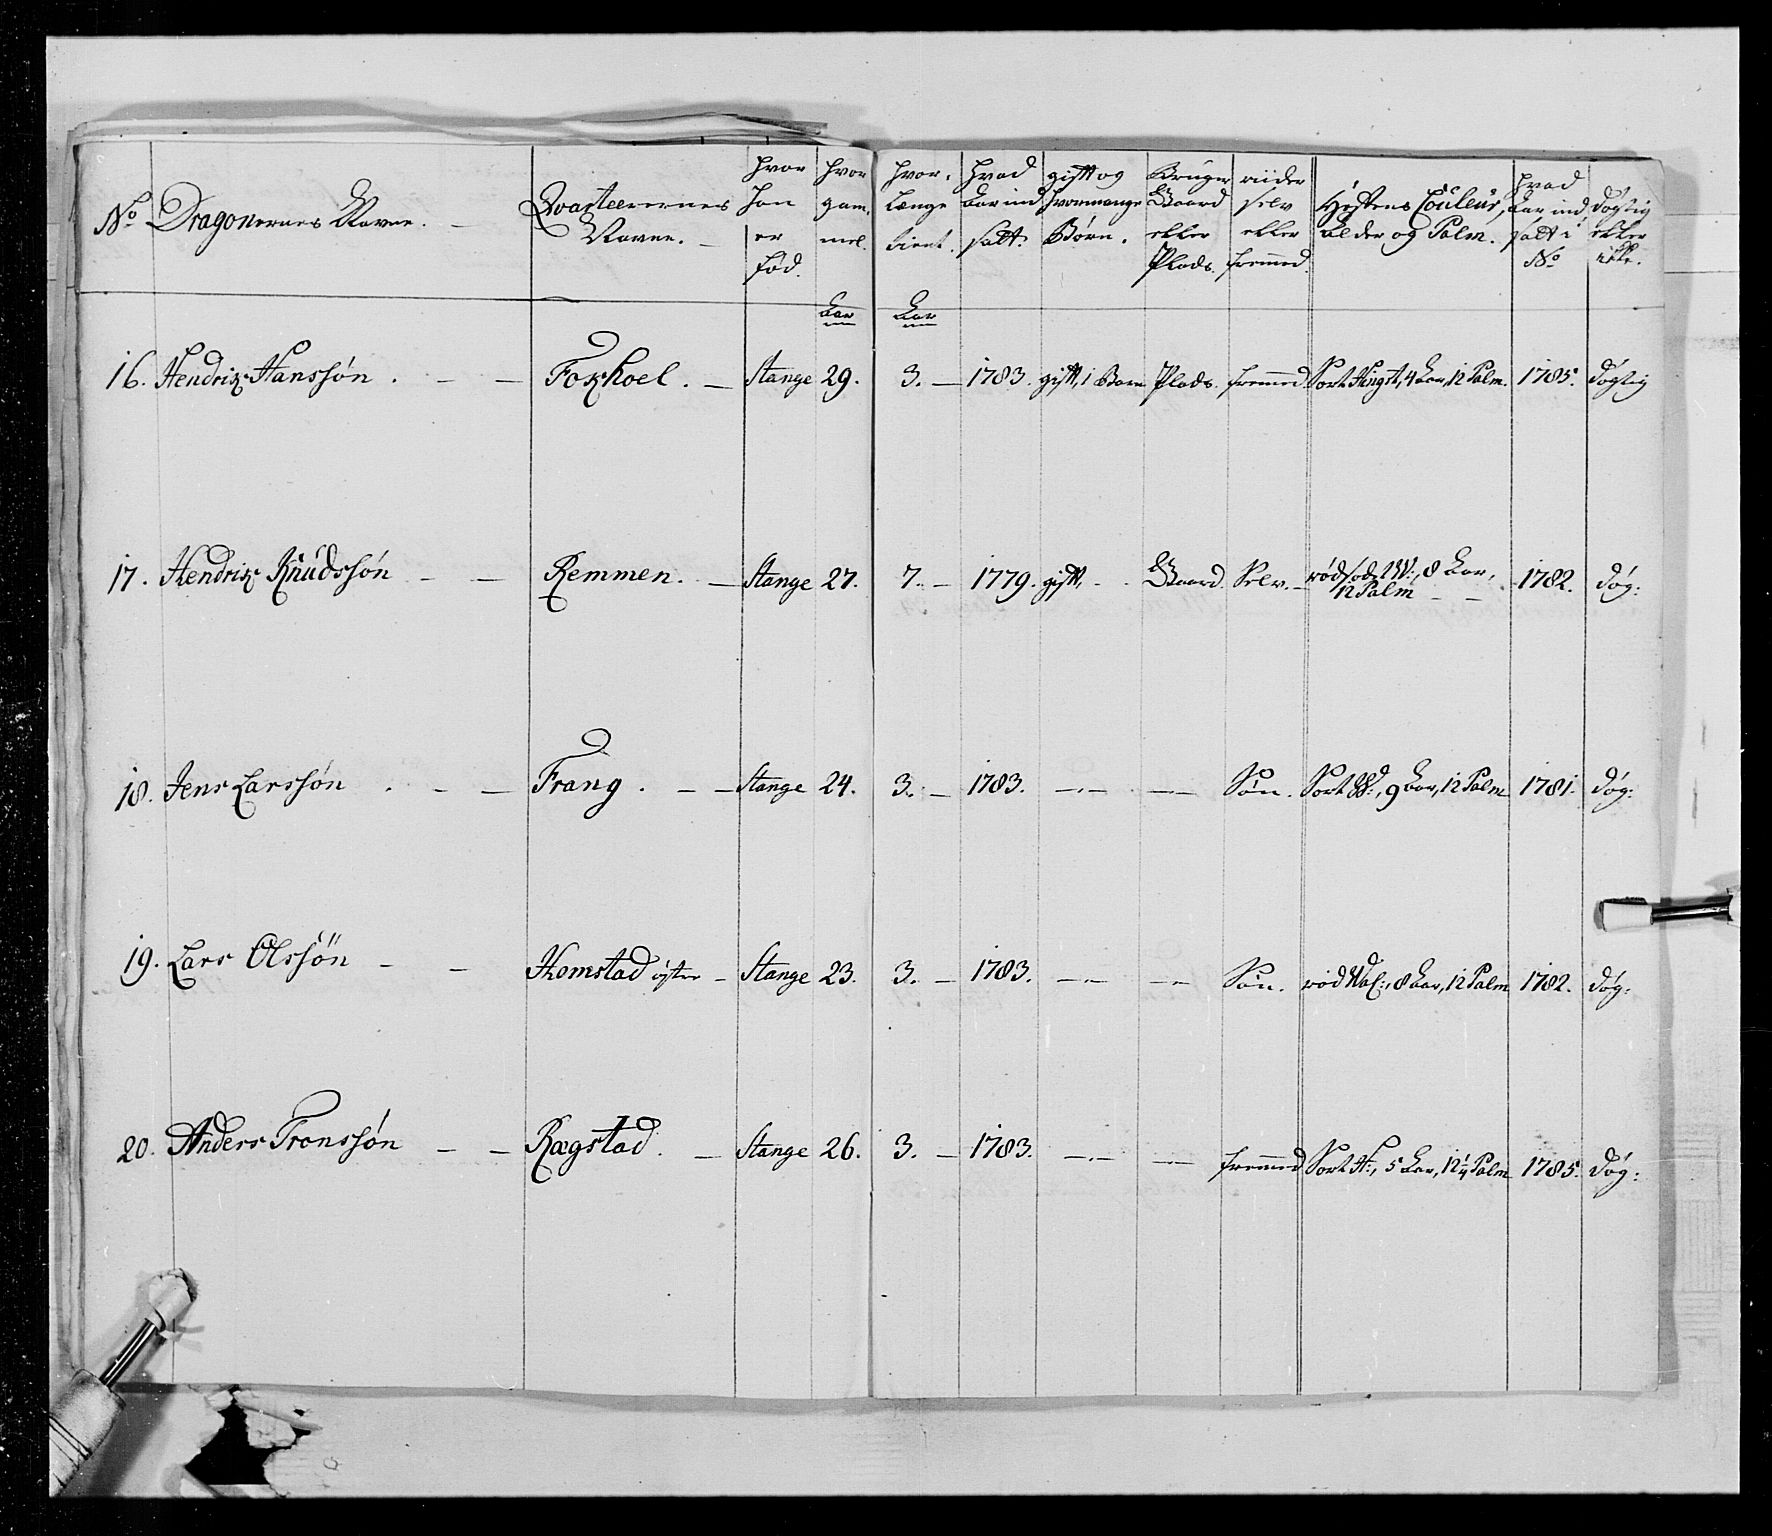 No. Dragonernes Navne. Qvarteerernes Navne. hvor han er fød. hvor gam- mel. hvor- længe tient. hvad Aar ind satt. gift og hvormange Børn. Bruger Gaard eller Plads. riider selv eller fremmed. Hæstens Couleur, Alder og Palm. hvad Aar ind satt i No. døgtig eller ikke.
Aar Aar
16. Hendrik Hanssøn. Foxhoel. Stange 29. 3. 1783. gift, 1 Barn Plads. fremmed. Sort Hingst, 4 Aar, 12 Palm. 1785. døgtig
17. Hendrik Knudssøn Remmen. Stange 27. 7. 1779. gift, Gaard. Selv. 8 Aar, 1782. døg:
12 Palm
18. Jens Larssøn Frang. Stange 24. 3. 1783. Søn. Sort 9 Aar, 12 Palm 1781. døg:
19. Lars Olssøn Homstad øster Stange 23. 3. 1783. Søn. rød Val:, 8 Aar, 12 Palm 1782. døg:
20. Anders Tronssøn Rægstad. Stange 26. 3. 1783. fremmed Sort H:, 5 Aar, 12¼ Palm 1785. døg: